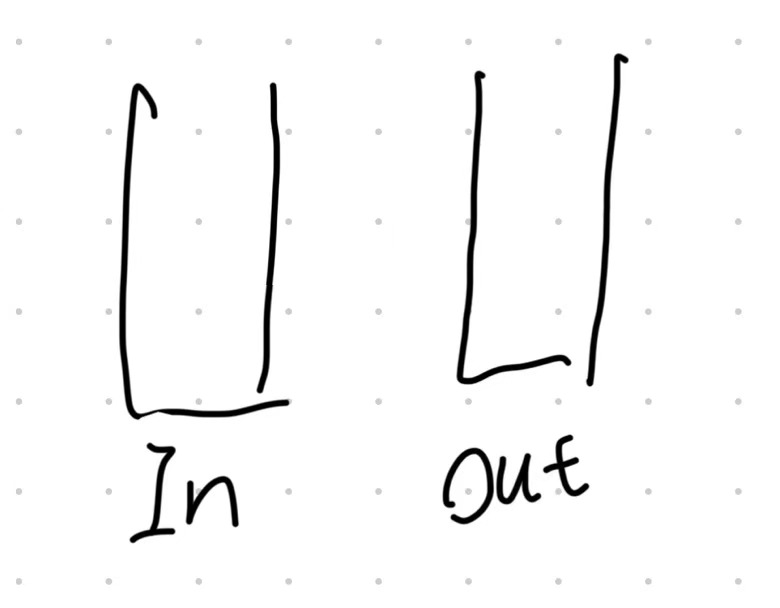 In Out